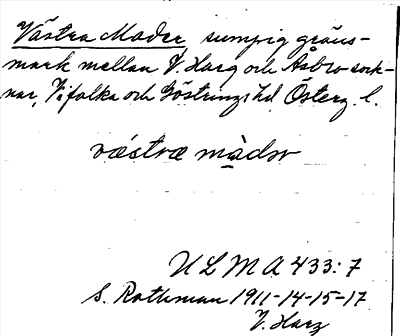 Västra Mader, sumpig gräns-
mark mellan V. Harg och Åsbo sock-
nar, Vifolka och Göstrings hd. Österg. l.
væstræ màdər
ULMA 433:7
S. Rothman 1911-14-15-17
V. Harg